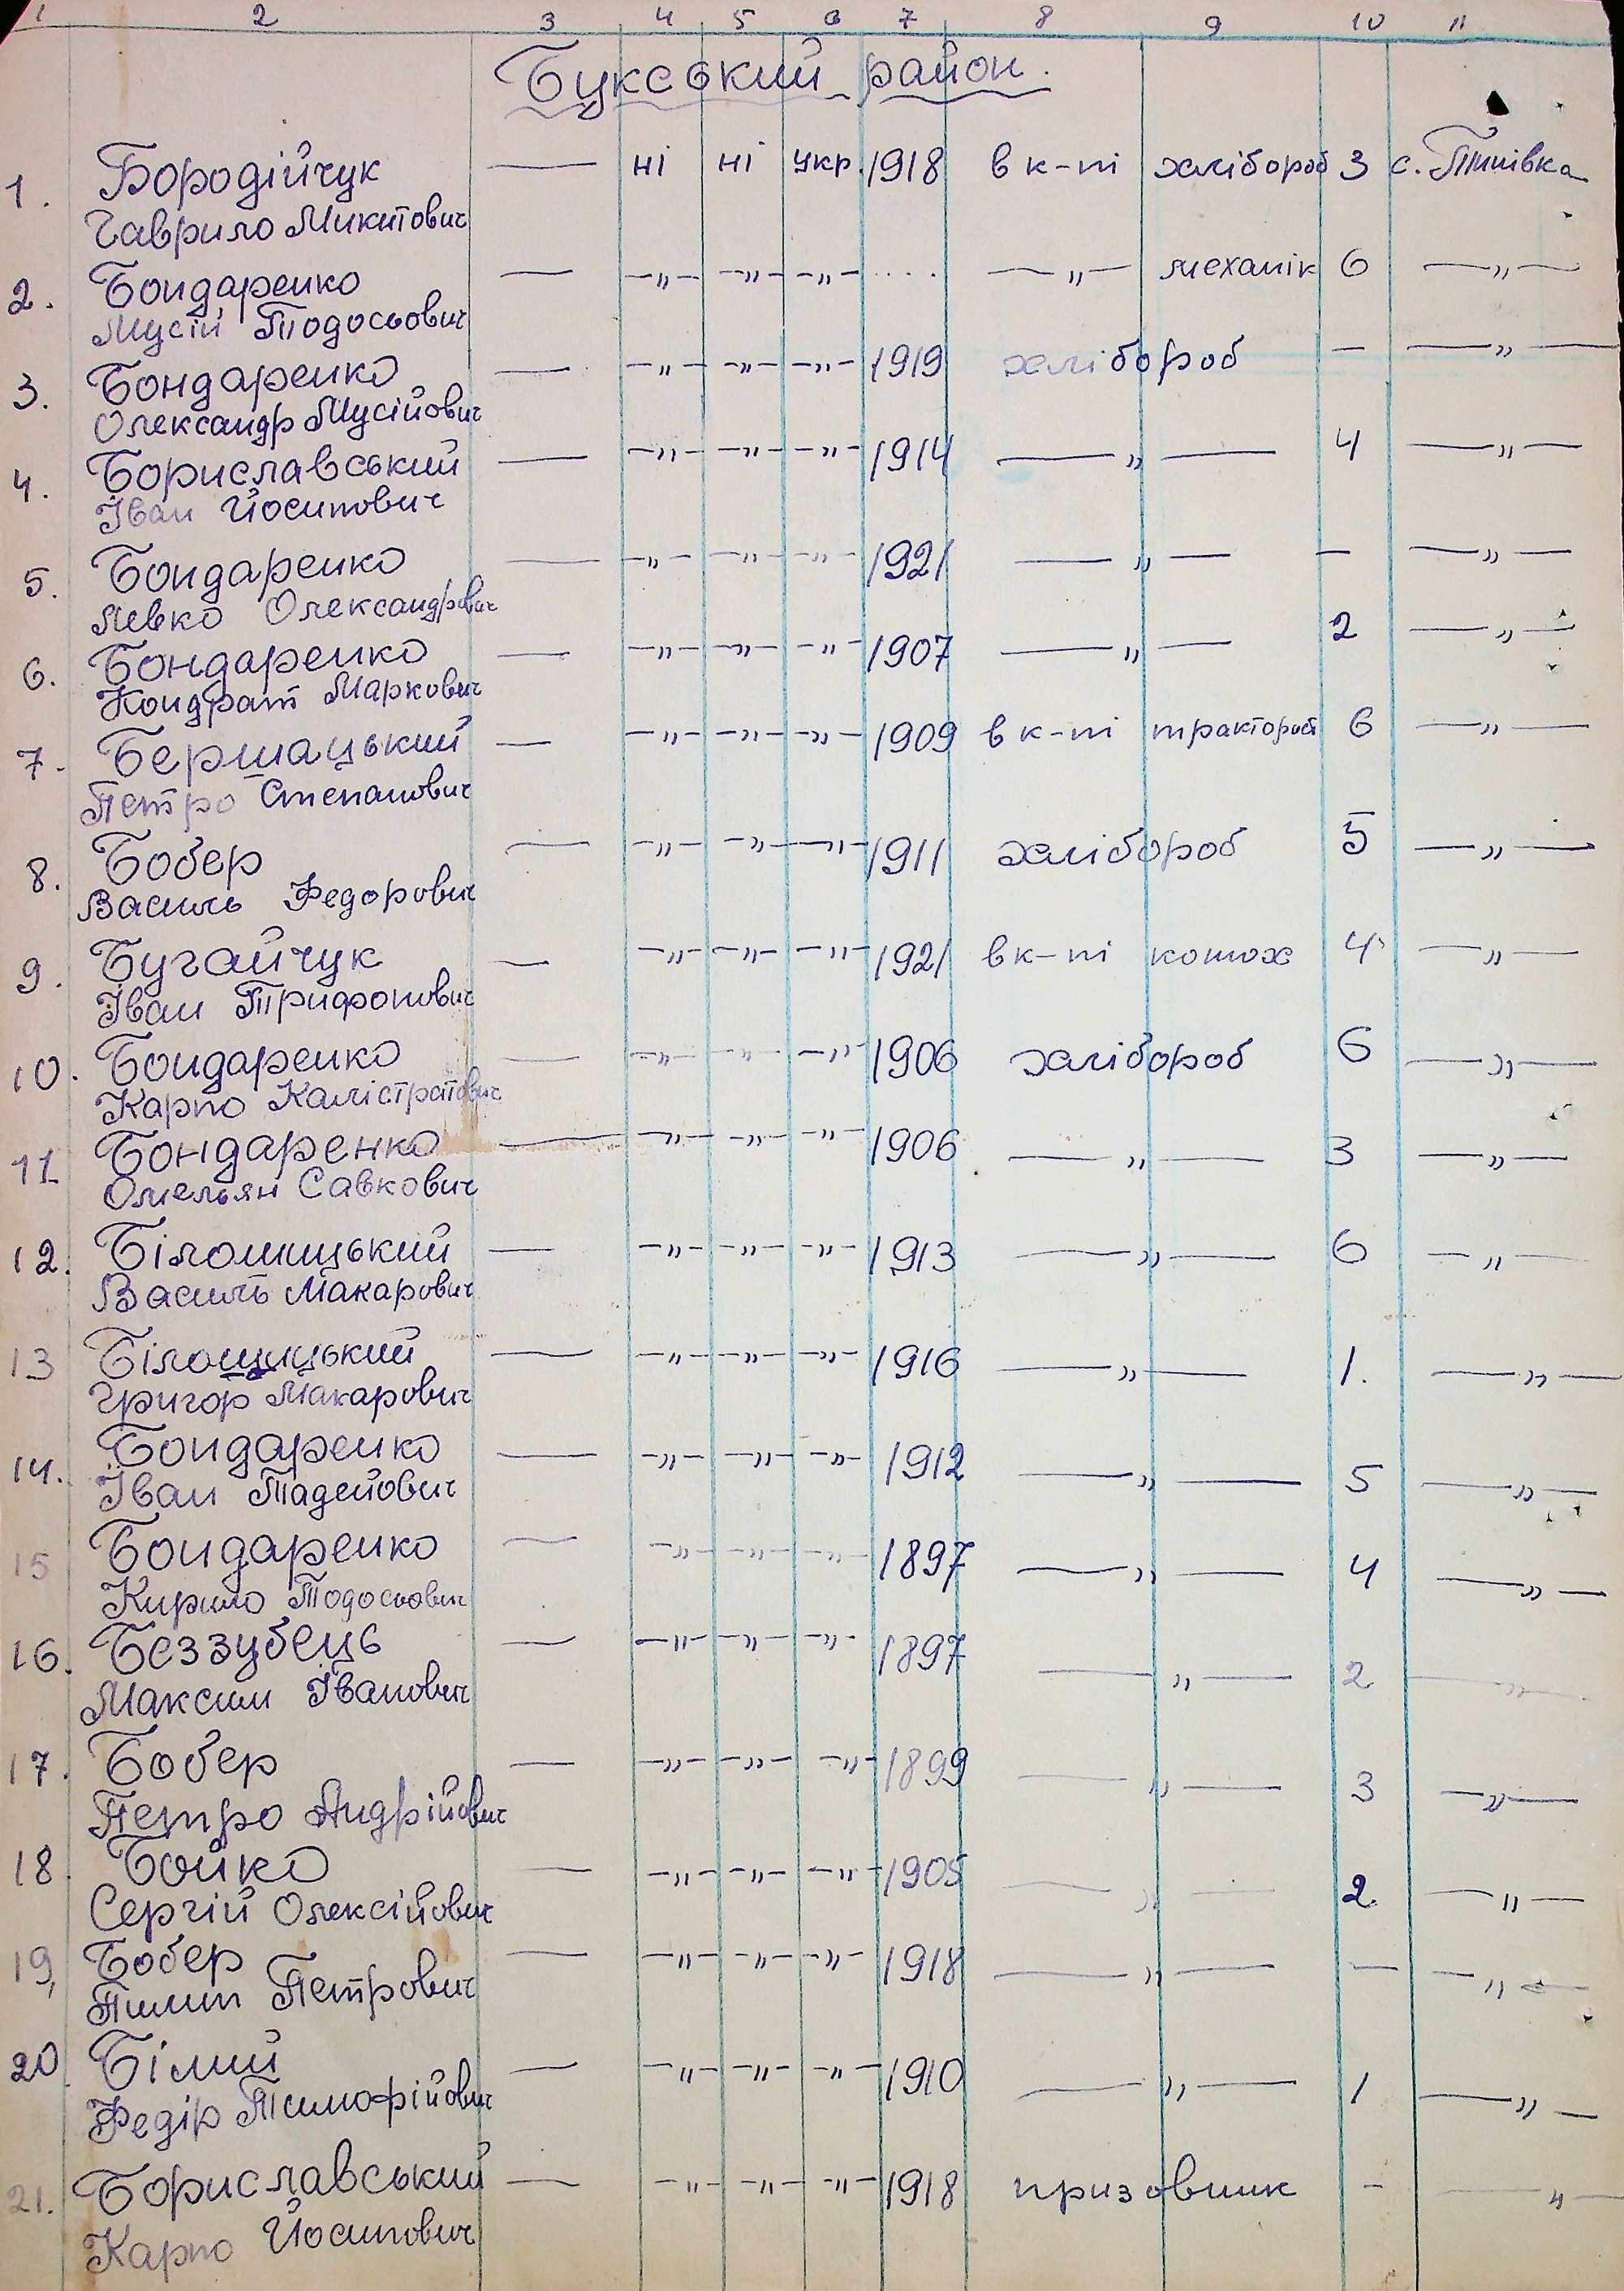 1 2 3 4 5 6 7 8 9 10 11
Букський район.
1. Бородійчук — ні ні укр. 1918 в к-пі хлібороб 3 с. Тинівка
Гаврило Микитович
2. Бондаренко — —„— —„— —„— .... —„— механік 6 —„—
Мусій Тодосьович
3. Бондаренко — —„— —„— —„— 1919 хлібороб — —„—
Олександр Мусійович
4. Бориславський — —„— —„— —„— 1914 —„— 4 —„—
Іван Йосипович
5. Бондаренко — —„— —„— —„— 1921 —„— — —„—
Левко Олександрович
6. Бондаренко — —„— —„— —„— 1907 —„— 2 —„—
Кондрат Маркович
7. Бершацький — —„— —„— —„— 1909 в к-пі тракторист 6 —„—
Петро Степанович
8. Бобер — —„— —„— —„— 1911 хлібороб 5 —„—
Василь Федорович
9. Бугайчук — —„— —„— —„— 1921 в к-пі конюх 4 —„—
Іван Трифонович
10. Бондаренко — —„— —„— —„— 1906 хлібороб 6 —„—
Карпо Калістратович
11 Бондаренко — —„— —„— —„— 1906 —„— 3 —„—
Омельян Савкович
12. Білошицький — —„— —„— —„— 1913 —„— 6 —„—
Василь Макарович
13 Білошицький — —„— —„— —„— 1916 —„— 1. —„—
Григор Макарович
14. Бондаренко — —„— —„— —„— 1912 —„— 5 —„—
Іван Тадейович
15 Бондаренко — —„— —„— —„— 1897 —„— 4 —„—
Кирило Тодосьович
16. Беззубець — —„— —„— —„— 1897 —„— 2 —„—
Максим Іванович
17. Бобер — —„— —„— —„— 1899 —„— 3 —„—
Петро Андрійович
18. Бойко — —„— —„— —„— 1905 —„— 2. —„—
Сергій Олексійович
19, Бобер — —„— —„— —„— 1918 —„— — —„—
Пилип Петрович
20. Білий — —„— —„— —„— 1910 —„— 1 —„—
Федір Тимофійович
21. Бориславський — —„— —„— —„— 1918 призовник - —„—
Карпо Йосипович